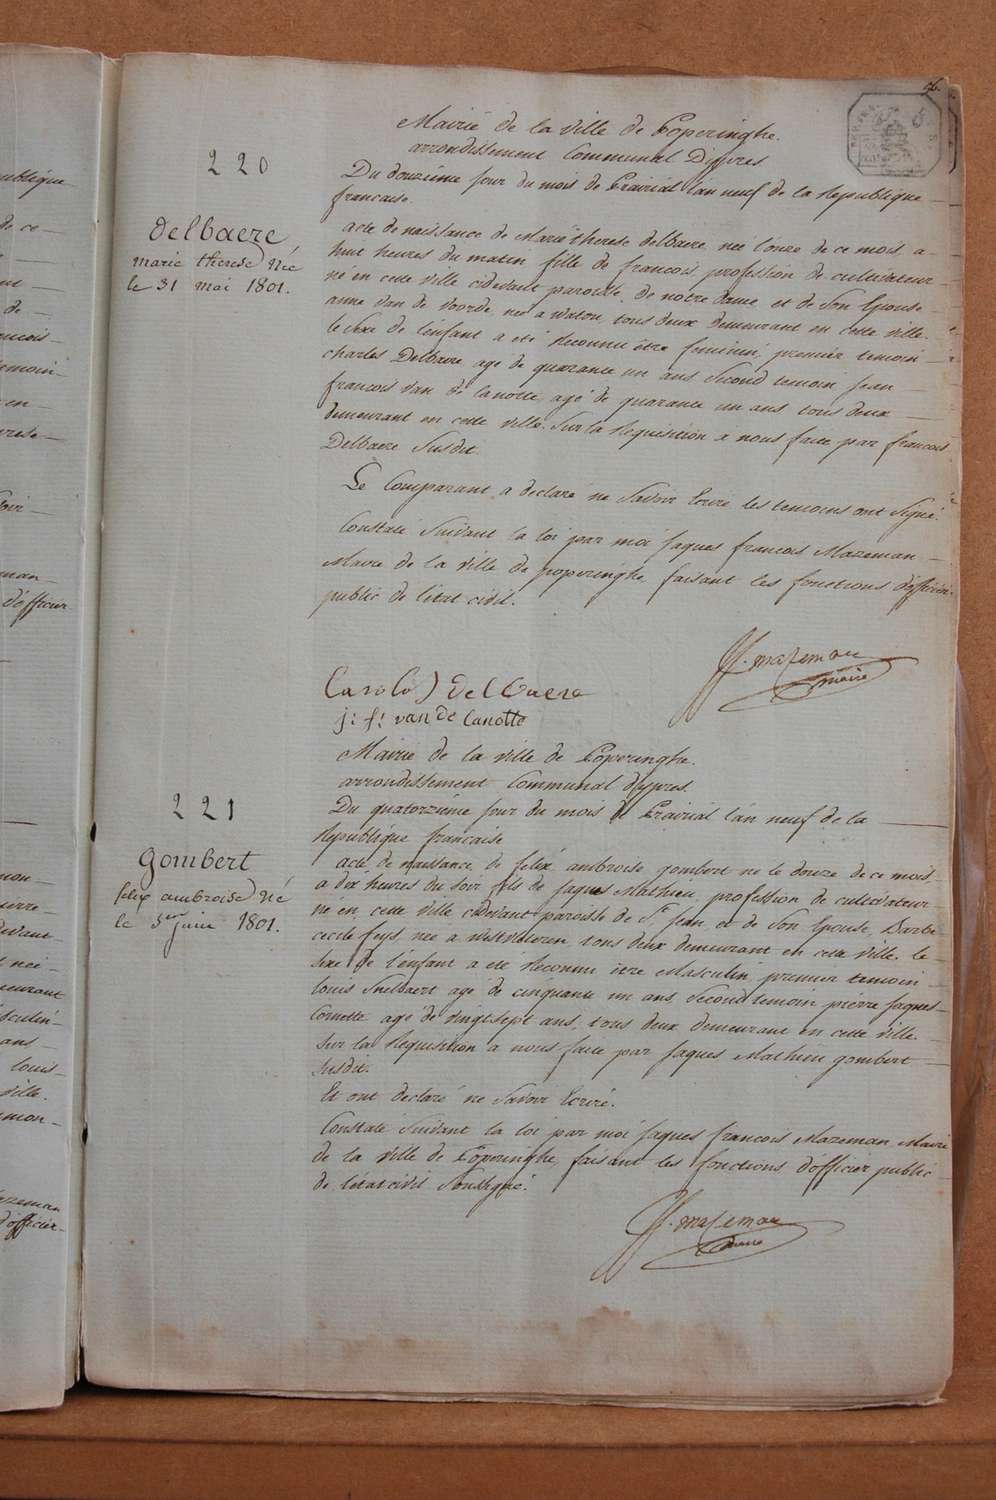 56.
Mairie de la ville de Poperinghe.
arrondissement Communal D'ypres
220
Du douzieme jour du mois de Prairial l'an neuf de la Republique
francaise.
delbaere
marie therese Né
le 31 mai 1801.
acte de naissance de Marie therese delbaere, neé l'onze de ce mois, a
huit heures du matin, fille de francois, profession de cultivateur
né en cette ville cidevant paroisse, de notre dame et de son Epouse
anne van de voorde, neé a waton, tous deux demeurant en cette ville.
le sexe de l'enfant a été Reconnu être feminin, premier temoin
charles Delbaere, agé de quarante un ans, second temoin, jean
francois van de lanotte, agé de quarante un ans tous deux
demeurant en cette ville. sur la Requisition a nous faite par francois
Delbaere susdit.
Le Comparant a declaré ne savoir Ecrire les temoins ont signé.
Constaté suivant la loi par moi jaques francois Mazeman
Maire de la ville de poperinghe, faisant les fonctions d'officier
public de l'etat civil.
jf. mazeman
maire
Carolo delbaere
j: f: van de lanotte
Mairie de la ville de Poperinghe.
arrondissement Communal d'ypres.
221
Du quatorzieme jour du mois de Prairial l'an neuf de la
Republique francaise
gombert
felix ambroise Né
le 3er juin 1801.
acte de naissance, de felix ambroise gombert né le douze de ce mois,
a dix heures du soir, fils de jaques Mathieu, profession de cultivateur
né en cette ville cidevant paroisse de St. jean, et de son Epouse, Barbe
cecile feys, neé a westvleteren, tous deux demeurant en cette ville. le
sexe de l'enfant a été Reconnu être Masculin, premier temoin
louis Snelbaert agé de cinquante un ans, second temoin pierre jaques
Cornette agé de vingt sept ans, tous deux demeurant en cette ville.
sur la Requisition a nous faite par jaques Mathieu gombert
susdit.
Et ont declaré ne savoir Ecrire.
Constaté suivant la loi par moi jaques francois Mazeman, Maire
de la ville de Poperinghe, faisant les fonctions d'officier public
de l'etat civil soussigné.
jf. mazeman
maire